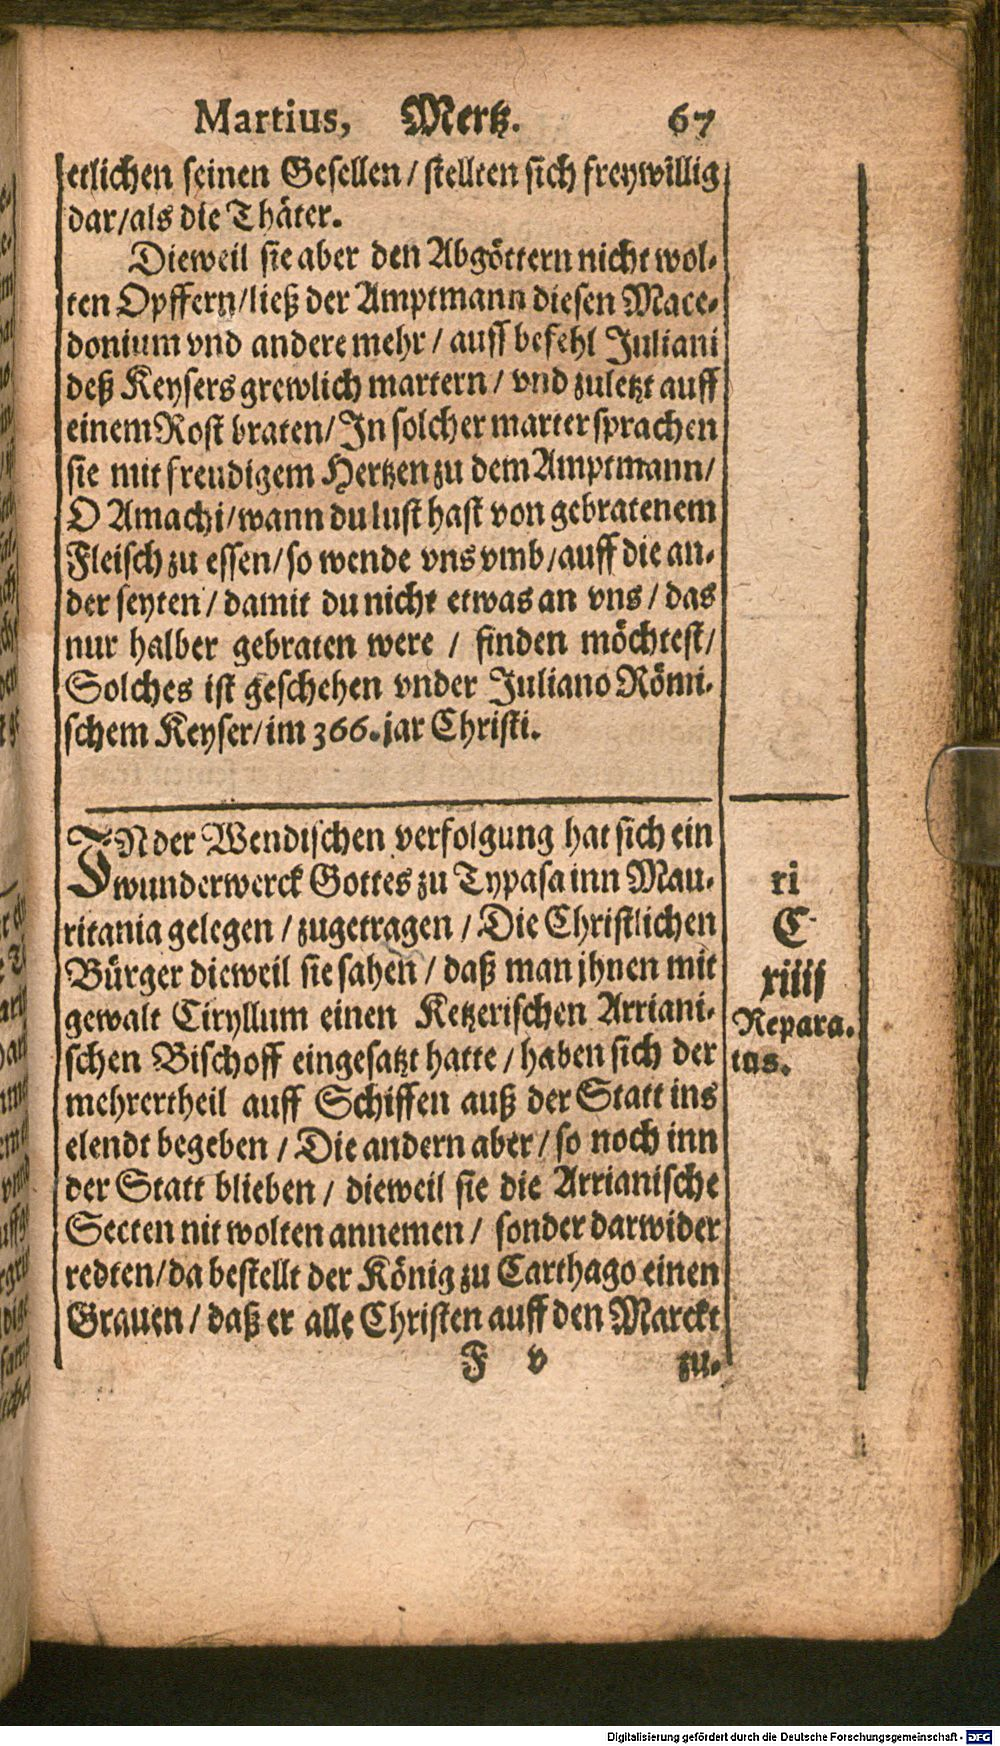 Martius, Mertz. 67
etlichen seinen Gesellen / stellten sich freywillig
dar/als die Thäter.
Dieweil sie aber den Abgöttern nicht wol-
ten Opffern/ließ der Amptmann diesen Mace-
donium vnd andere mehr / auss befehl Juliani
deß Keysers grewlich martern / vnd zuletzt auff
einem Rost braten/ In solcher marter sprachen
sie mit freudigem Hertzen zu dem Amptmann/
O Amachi/wann du lust hast von gebratenem
Fleisch zu essen/so wende vns vmb/auff die an-
der seyten / damit du nicht etwas an vns / das
nur halber gebraten were / finden möchtest/
Solches ist geschehen vnder Juliano Römi-
schem Keyser/im 366.jar Christi.
IN der Wendischen verfolgung hat sich ein
wunderwerck Gottes zu Typasa inn Mau-
ritania gelegen / zugetragen / Die Christlichen
Bürger dieweil sie sahen / daß man jhnen mit
gewalt Ciryllum einen Ketzerischen Arriani-
schen Bischoff eingesatzt hatte / haben sich der
mehrertheil auff Schiffen auß der Statt ins
elendt begeben / Die andern aber / so noch inn
der Statt blieben / dieweil sie die Arrianische
Secten nit wolten annemen / sonder darwider
redten/da bestellt der König zu Carthago einen
Grauen / daß er alle Christen auff den Marckt
F v zu-
xi
C
xiiij
Repara-
tus.
Digitalisierung gefördert durch die Deutsche Forschungsgemeinschaft - DFG